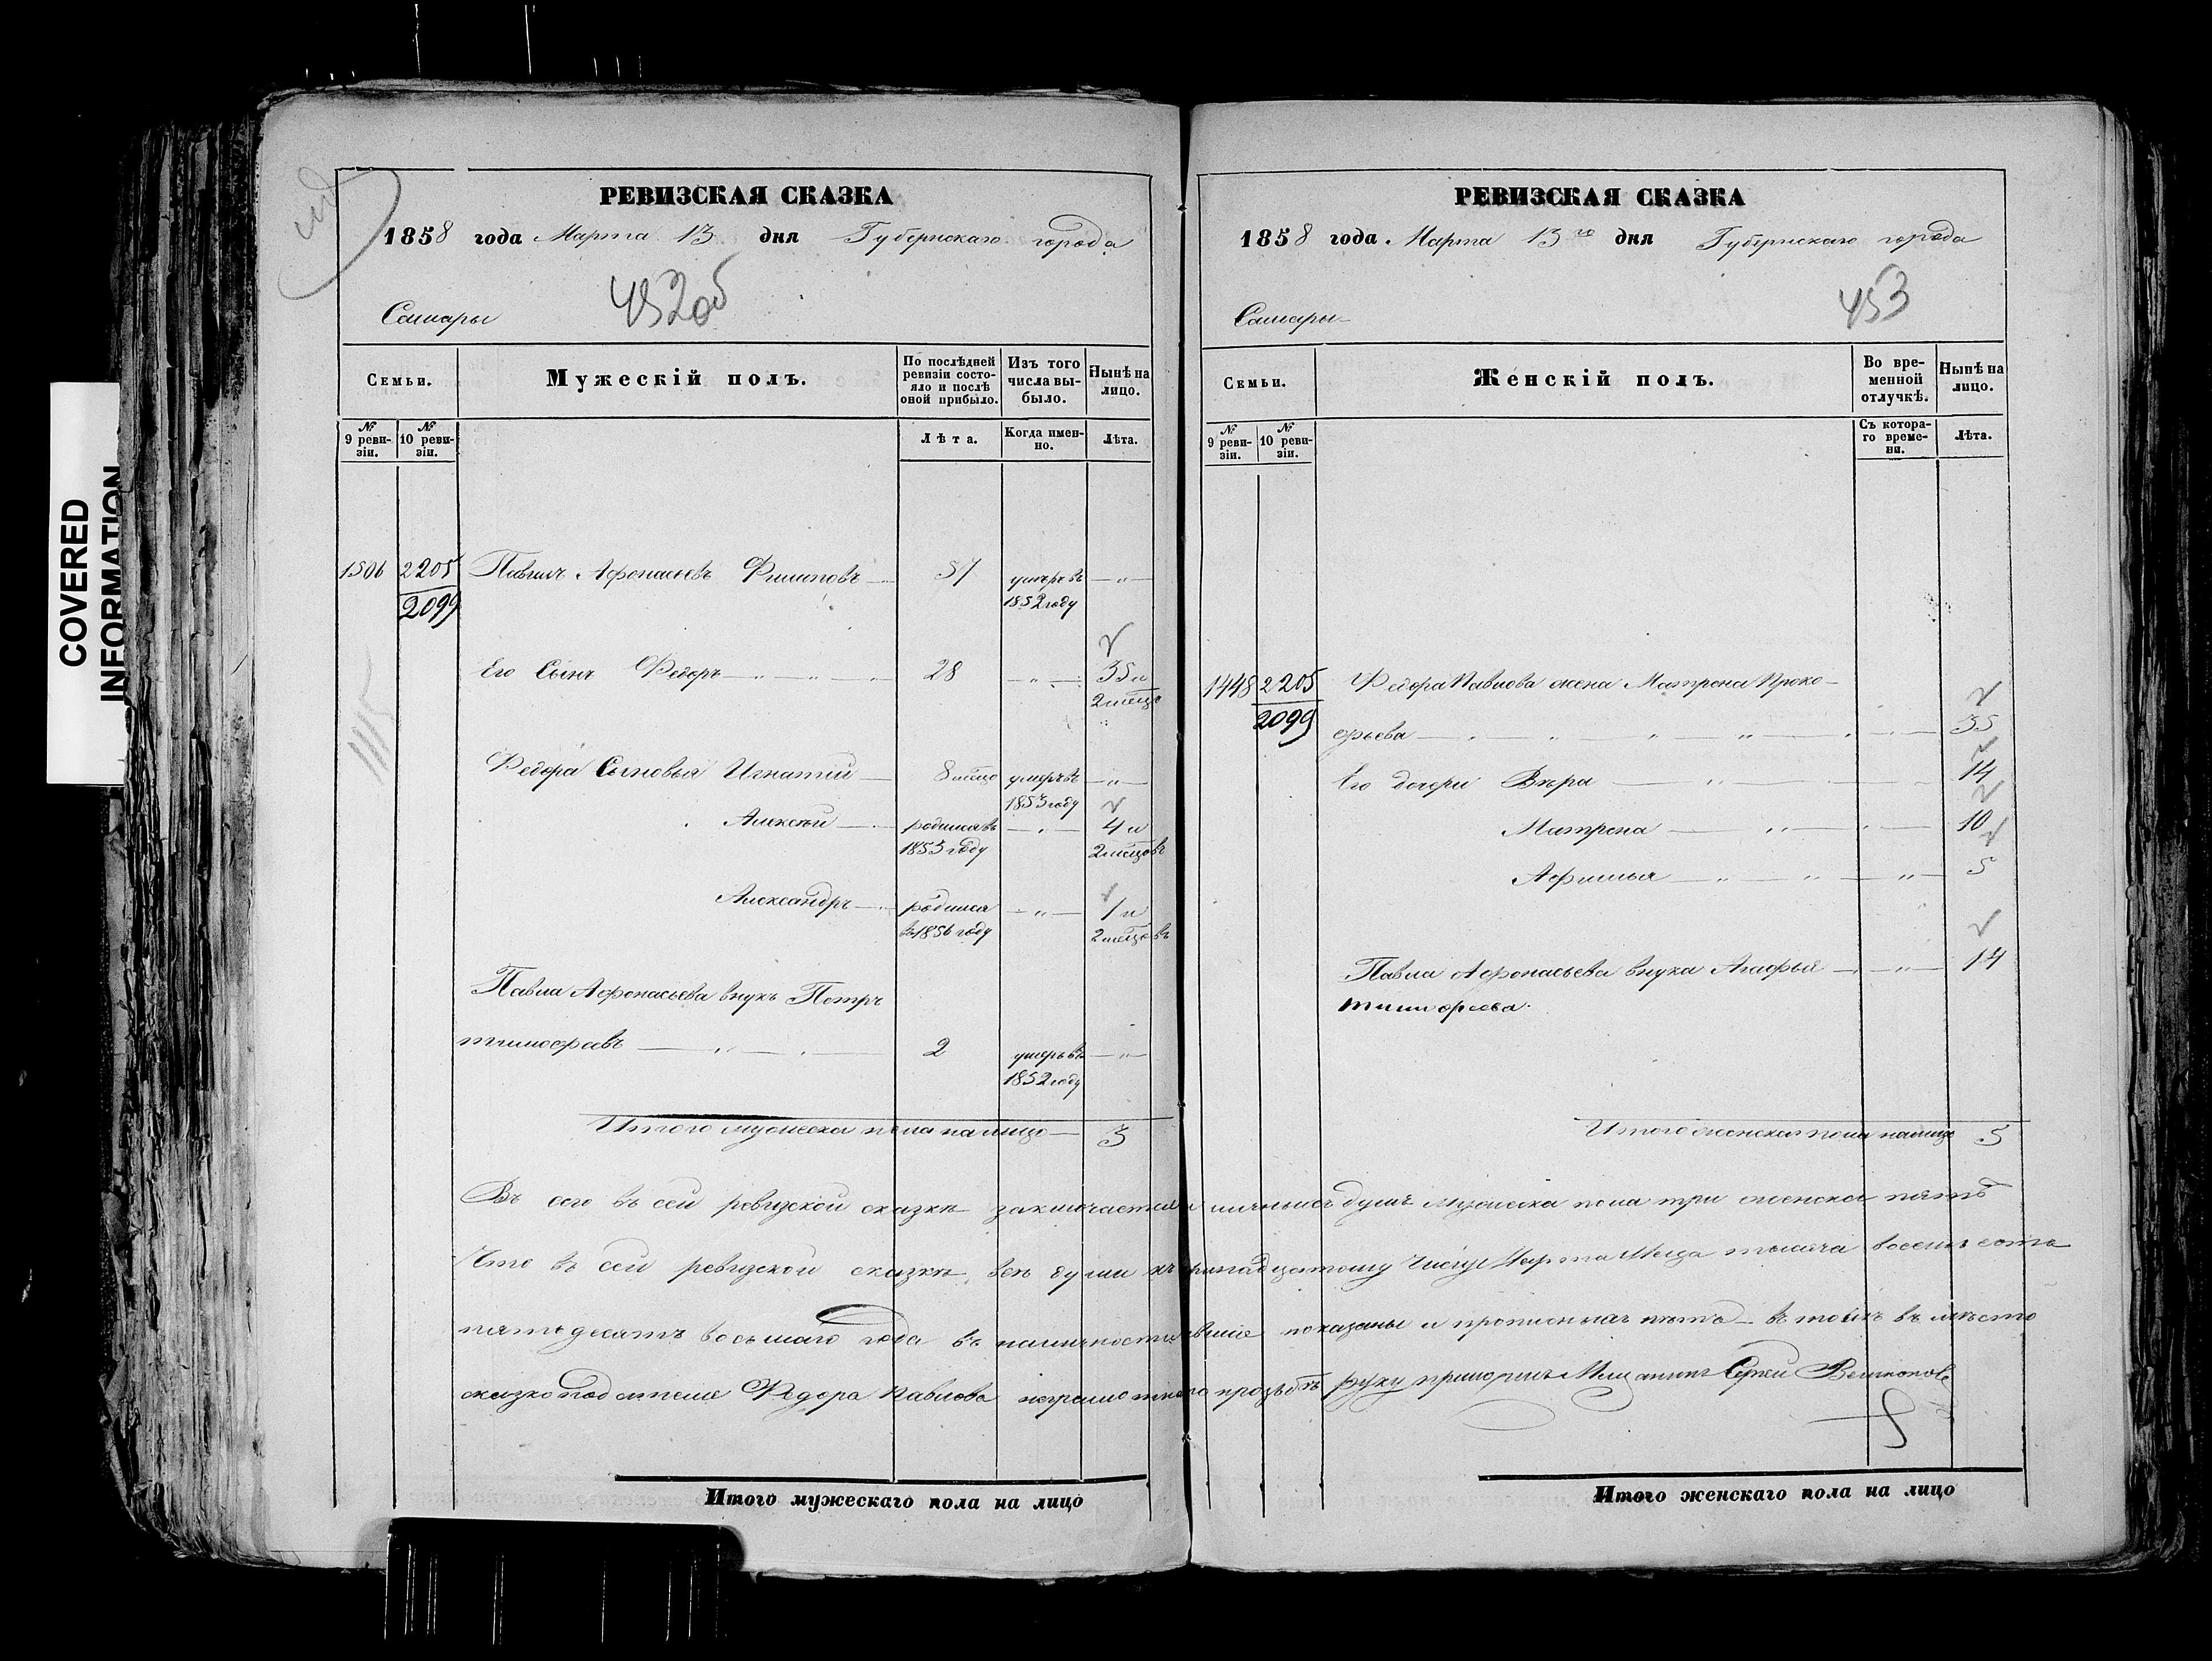 COVERED
INFORMATION
РЕВИЗСКАЯ СКАЗКА
1858 года Марта 13 дня Губернскаго города
452об
Самары
Семьи.
Мужескій полъ.
По послѣдней ревизіи состояло и послѣ оной прибыло.
Изъ того числа выбыло.
Нынѣ на лицо.
№ 9 ревизіи.
№ 10 ревизіи.
Лѣта.
Когда именно.
Лѣта.
1506 2205 Павелъ Афонасьевъ Филиповъ 51 умеръ въ — " —
2099 1852 году
Его Сынъ Федоръ — " — " — 28 — " — 35 и
2 месца
Федора Сыновья Игнатій — 8 месцо умеръ въ — " —
1853 году
Алексей — родился въ — " — 4 и
1853 году 2 месцовъ
Александръ — родился — " — 1 и
въ 1856 году 2 месцовъ
Павла Афонасьева внукъ Петръ
тимофеевъ — " — 2 умеръ въ — " —
1852 году
Итого мужеска пола налицо — 3
РЕВИЗСКАЯ СКАЗКА
1858 года Марта 13го дня Губернскаго города
453
Самары
Семьи.
Женскій полъ.
Во временной отлучкѣ.
Нынѣ на лицо.
№ 9 ревизіи.
№ 10 ревизіи.
Съ котораго времени.
Лѣта.
1448 2205 Федора Павлова жена Матрена Проко-
2099 фьева — " — " — " — 35
Его дочери Вѣра — " — 14
Матрена — " — 10
Афимья — " — " — " — 5
Павла Афонасьева внука Агафья — " — 14
тимофеева.
Итого женска пола налицо 5
Въ сего въ сей ревизской сказкѣ заключается наличныхъ душъ мужеска пола три женска пять
Что въ сей ревизской сказкѣ все души къ тринадцатому числу Марта Месца тысяча восемь сотъ
пятьдесятъ восьмаго года въ наличности показаны и прописныхъ нѣтъ въ томъ въ мѣсто
Федора Павлова неграмотнаго прозьбѣ руку приложилъ Мещанинъ Сергей
Итого мужескаго пола на лицо
Итого женскаго пола на лицо